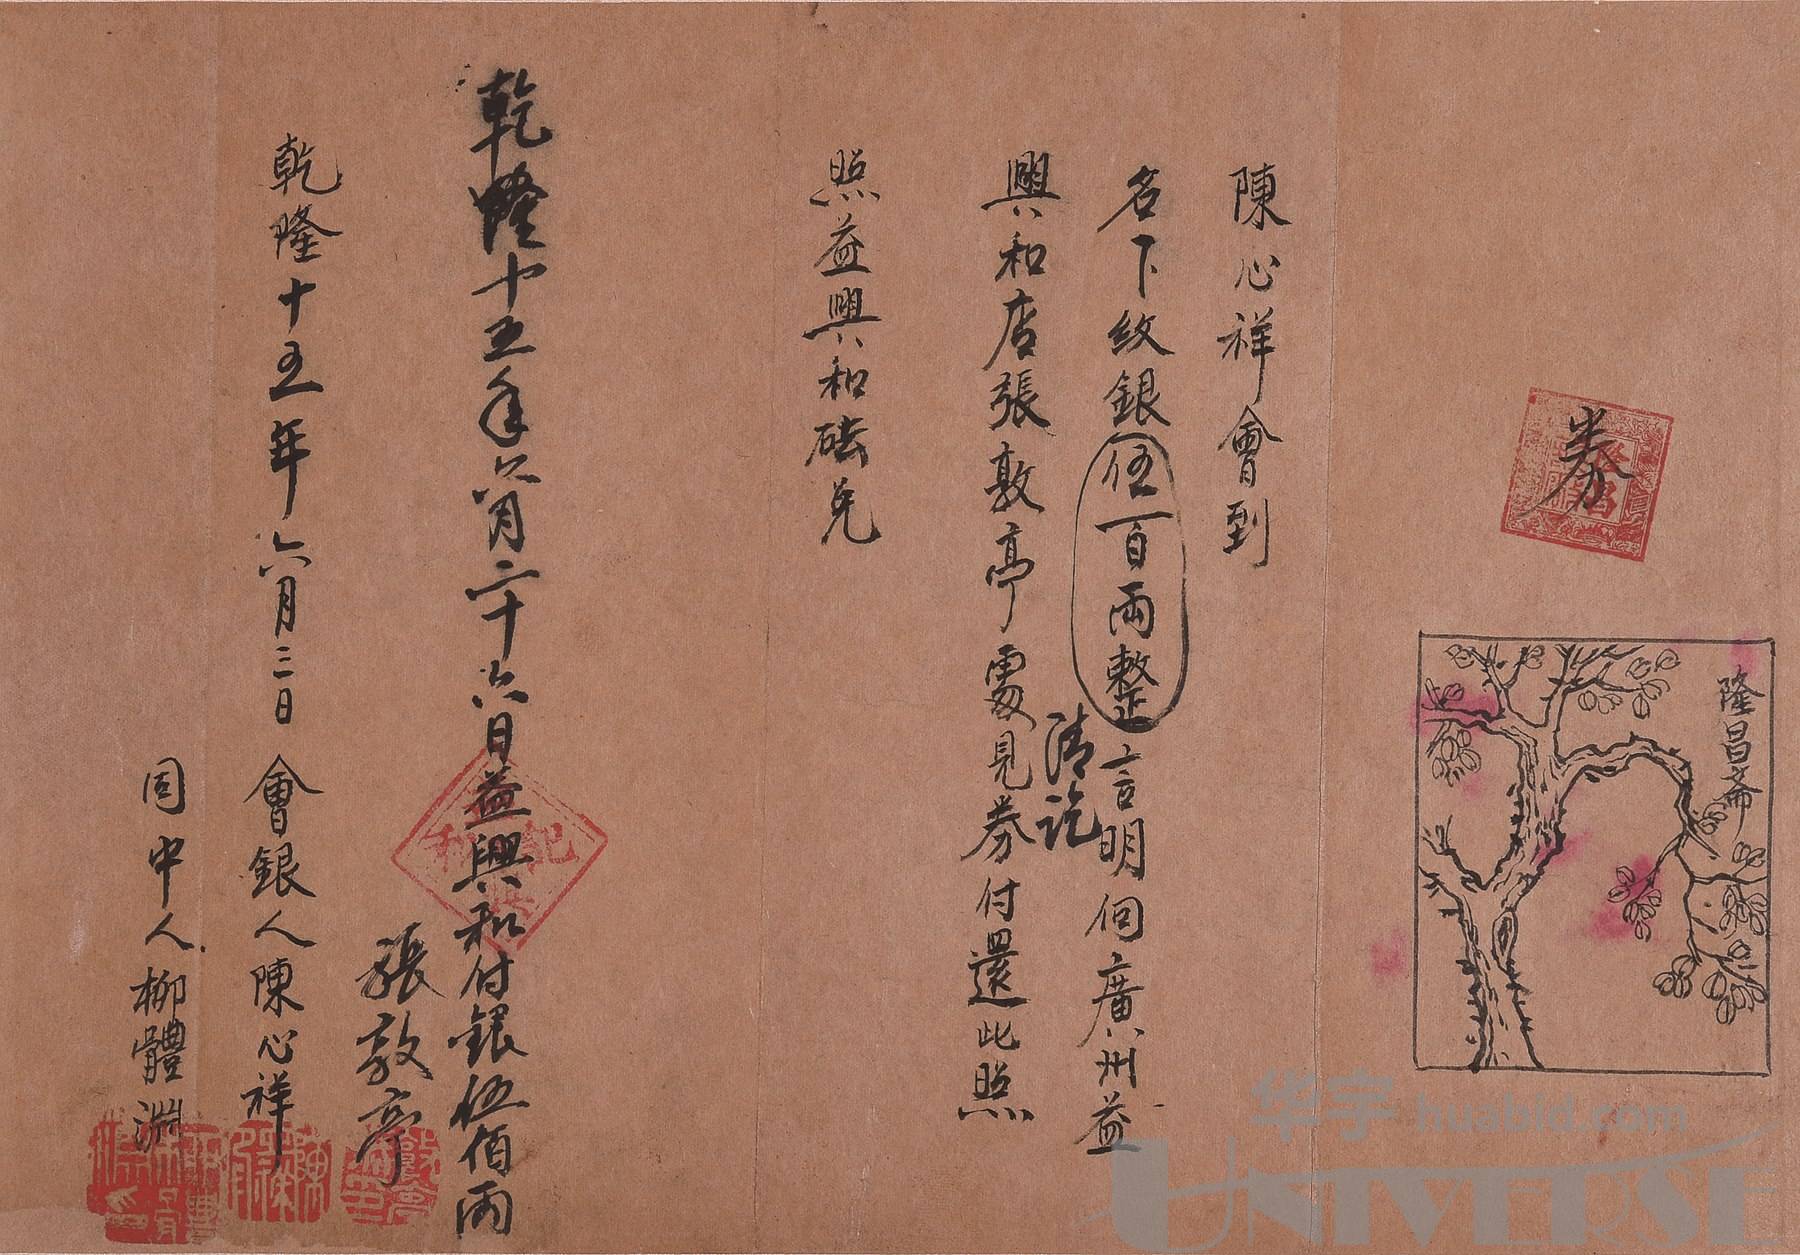 券
隆昌斋
陳心祥會到
名下紋銀伍百兩整言明伺廣州益
清訖
興和店張敦亭處見券付還此照
照益興和砝兑
乾隆十五年六月二十六日益興和付銀伍佰兩
張敦亭
乾隆十五年六月三日會銀人陳心祥
同中人柳體淵
华宇 huabid.com
UNIVERSE